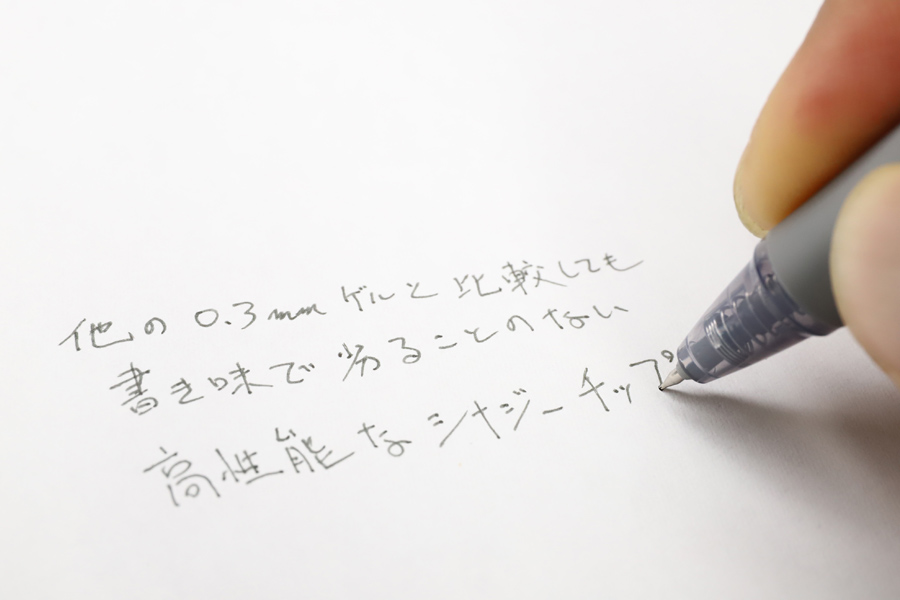 他の 0.3mm ゲルと 比較しても
書き味で 劣ることのない
高性能な シナジーチップ